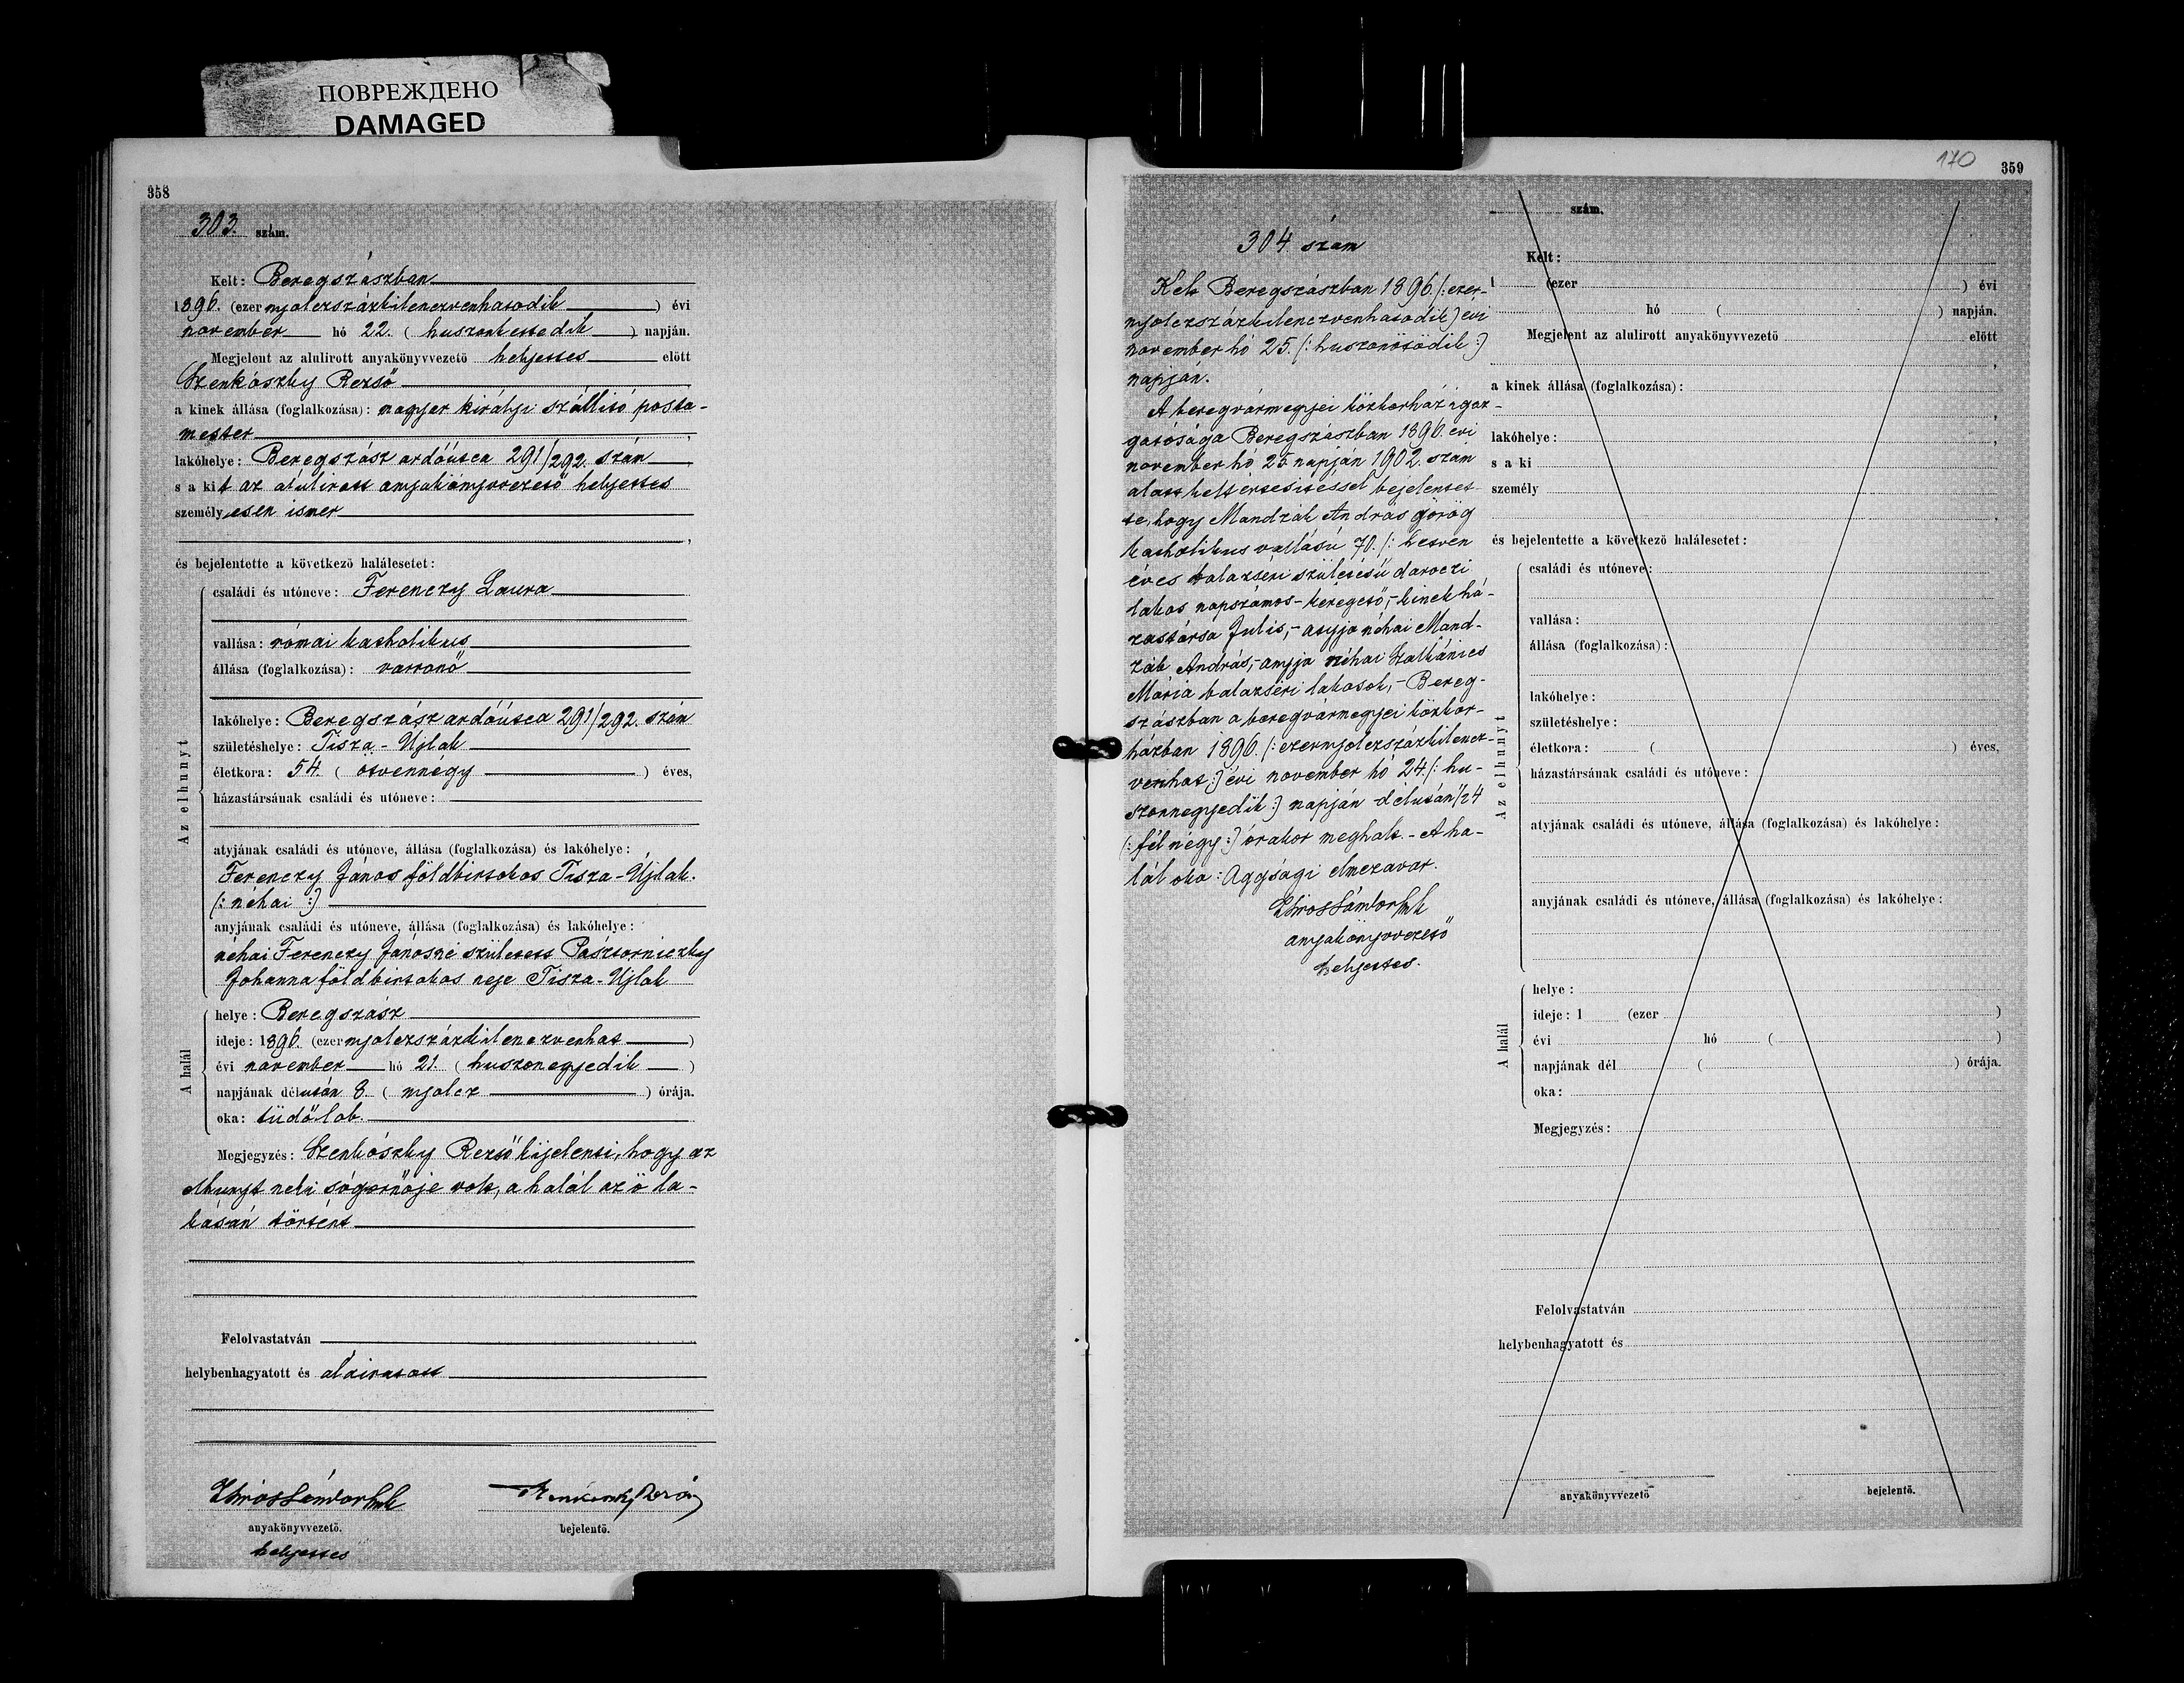 ПОВРЕЖДЕНО
DAMAGED
358
303. szám.
Kelt: Beregszászban
1896. (ezer nyolczszázkilenczvenhatodik) évi
november hó 22. (huszonkettedik) napján.
Megjelent az alulirott anyakönyvvezető helyettes előtt
Szenkószky Rezső
a kinek állása (foglalkozása): magyar királyi szállitó posta-
mester,
lakóhelye: Beregszász ardóutca 291/292. szán,
s a kit az alulirott anyakönyvvezető helyettes
személyesen ismer
,
és bejelentette a következő halálesetet:
Az elhunyt
családi és utóneve: Ferenczy Laura
vallása: római katholikus
állása (foglalkozása): varronő
lakóhelye: Beregszász ardóutca 291/292. szán
születéshelye: Tisza-Ujlak
életkora: 54. (ötvennégy) éves,
házastársának családi és utóneve:
atyjának családi és utóneve, állása (foglalkozása) és lakóhelye:
Ferenczy János földbirtokos Tisza-Újlak.
(: néhai :)
anyjának családi és utóneve, állása (foglalkozása) és lakóhelye:
néhai Ferenczy Jánosné született Pásztorniczky
Johanna földbirtokos neje Tisza-Ujlak
A halál
helye: Beregszász
ideje: 1896. (ezer nyolczszázkilenczvenhat)
évi november hó 21. (huszonegyedik)
napjának délután 8. (nyolcz) órája.
oka: tüdőlob.
Megjegyzés: Szenkószky Rezső kijelenti, hogy az
elhunyt neki sógornője volt, a halál az ő la-
kásán történt
Felolvastatván
helybenhagyatott és aláiratott
anyakönyvvezető.
bejelentő.
helyettes
170
359
304 szám
Kelt Beregszászban 1896 (: ezer-
nyolczszázkilenczvenhatodik) évi
november hó 25. (: huszonötödik :)
napján.
A beregvármegyei közkorház igaz-
gatósága Beregszászban 1896. évi
november hó 25 napján 1902. szám
alatt kelt értesitéssel bejelentet-
te, hogy Mandzák András görög
katholikus vallású 70. (: hetven
éves balazséri születésű daroczi
lakos napszámos - kéregető, - kinek há-
zastársa Julis, - atyja néhai Mand-
zák András, - anyja néhai
Mária balazséri lakosok, - Bereg-
szászban a beregvármegyei közkor-
házban 1896. (: ezernyolczszázkilencz-
venhat :) évi november hó 24. (: hu-
szonnegyedik :) napján délután 1/2 4
(: fél négy :) órakor meghalt. - A ha-
lál oka: Aggsági elmezavar.
anyakönyvvezető
helyettes.
szám.
Kelt:
1 (ezer ) évi
hó ( ) napján.
Megjelent az alulirott anyakönyvvezető előtt
,
a kinek állása (foglalkozása):
,
lakóhelye: ,
s a ki
személy
,
és bejelentette a következő halálesetet:
Az elhunyt
családi és utóneve:
vallása:
állása (foglalkozása):
lakóhelye:
születéshelye:
életkora: ( ) éves,
házastársának családi és utóneve:
atyjának családi és utóneve, állása (foglalkozása) és lakóhelye:
anyjának családi és utóneve, állása (foglalkozása) és lakóhelye:
A halál
helye:
ideje: 1 (ezer )
évi hó ( )
napjának dél ( ) órája.
oka:
Megjegyzés:
Felolvastatván
helybenhagyatott és
anyakönyvvezető
bejelentő.